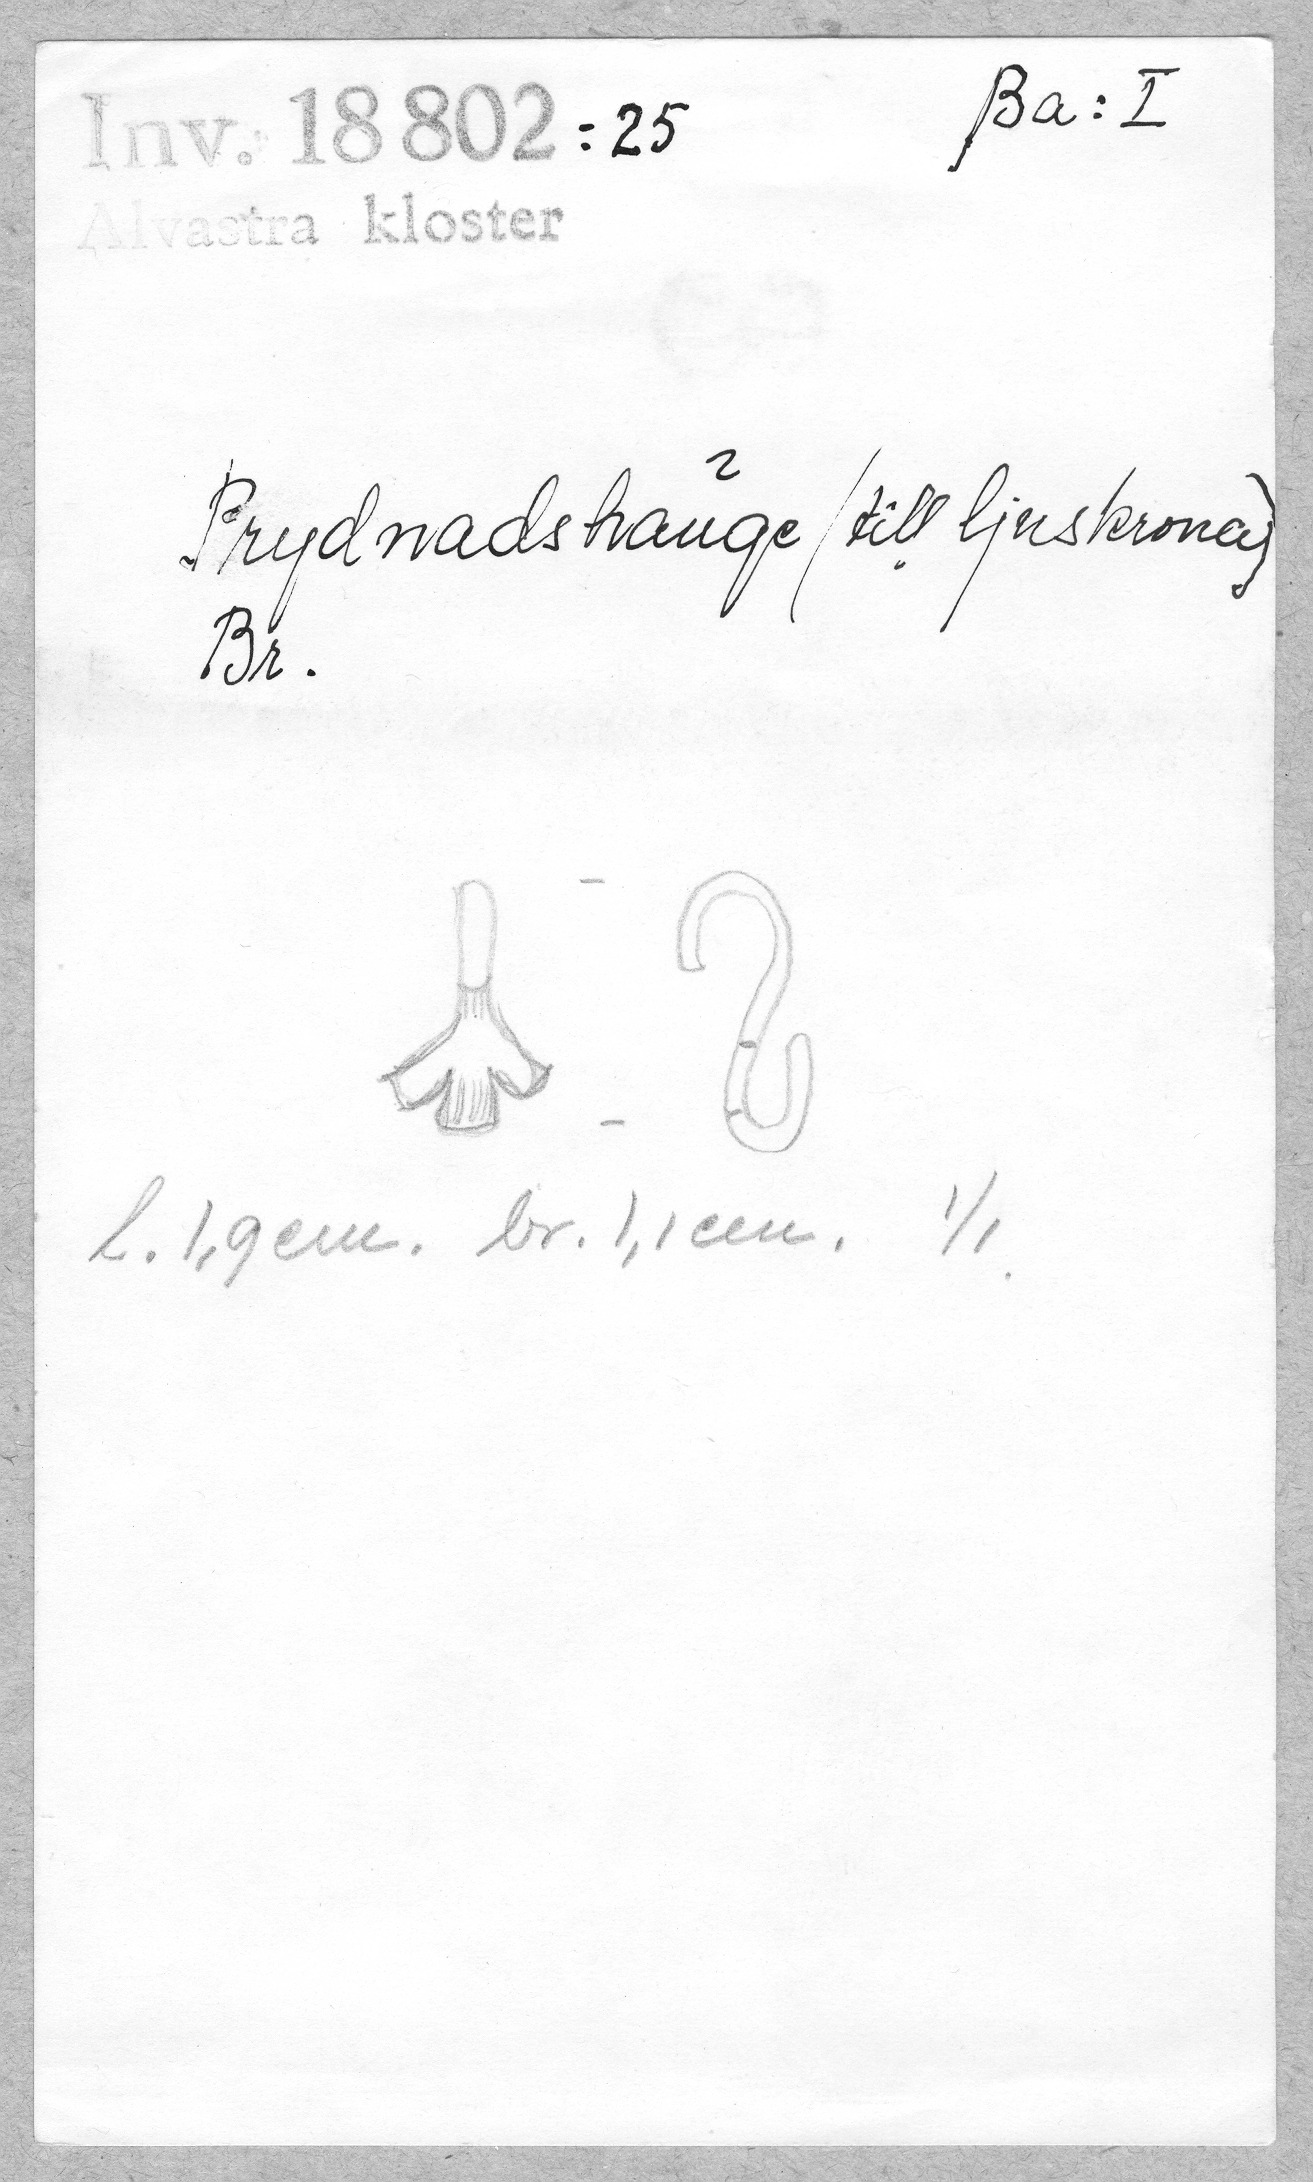 Inv. 18 802 :25
Ba: I
Alvastra kloster
Prydnadshänge (till ljuskrona)
Br.
L. 1,9 cm. br. 1,1 cm. 1/1